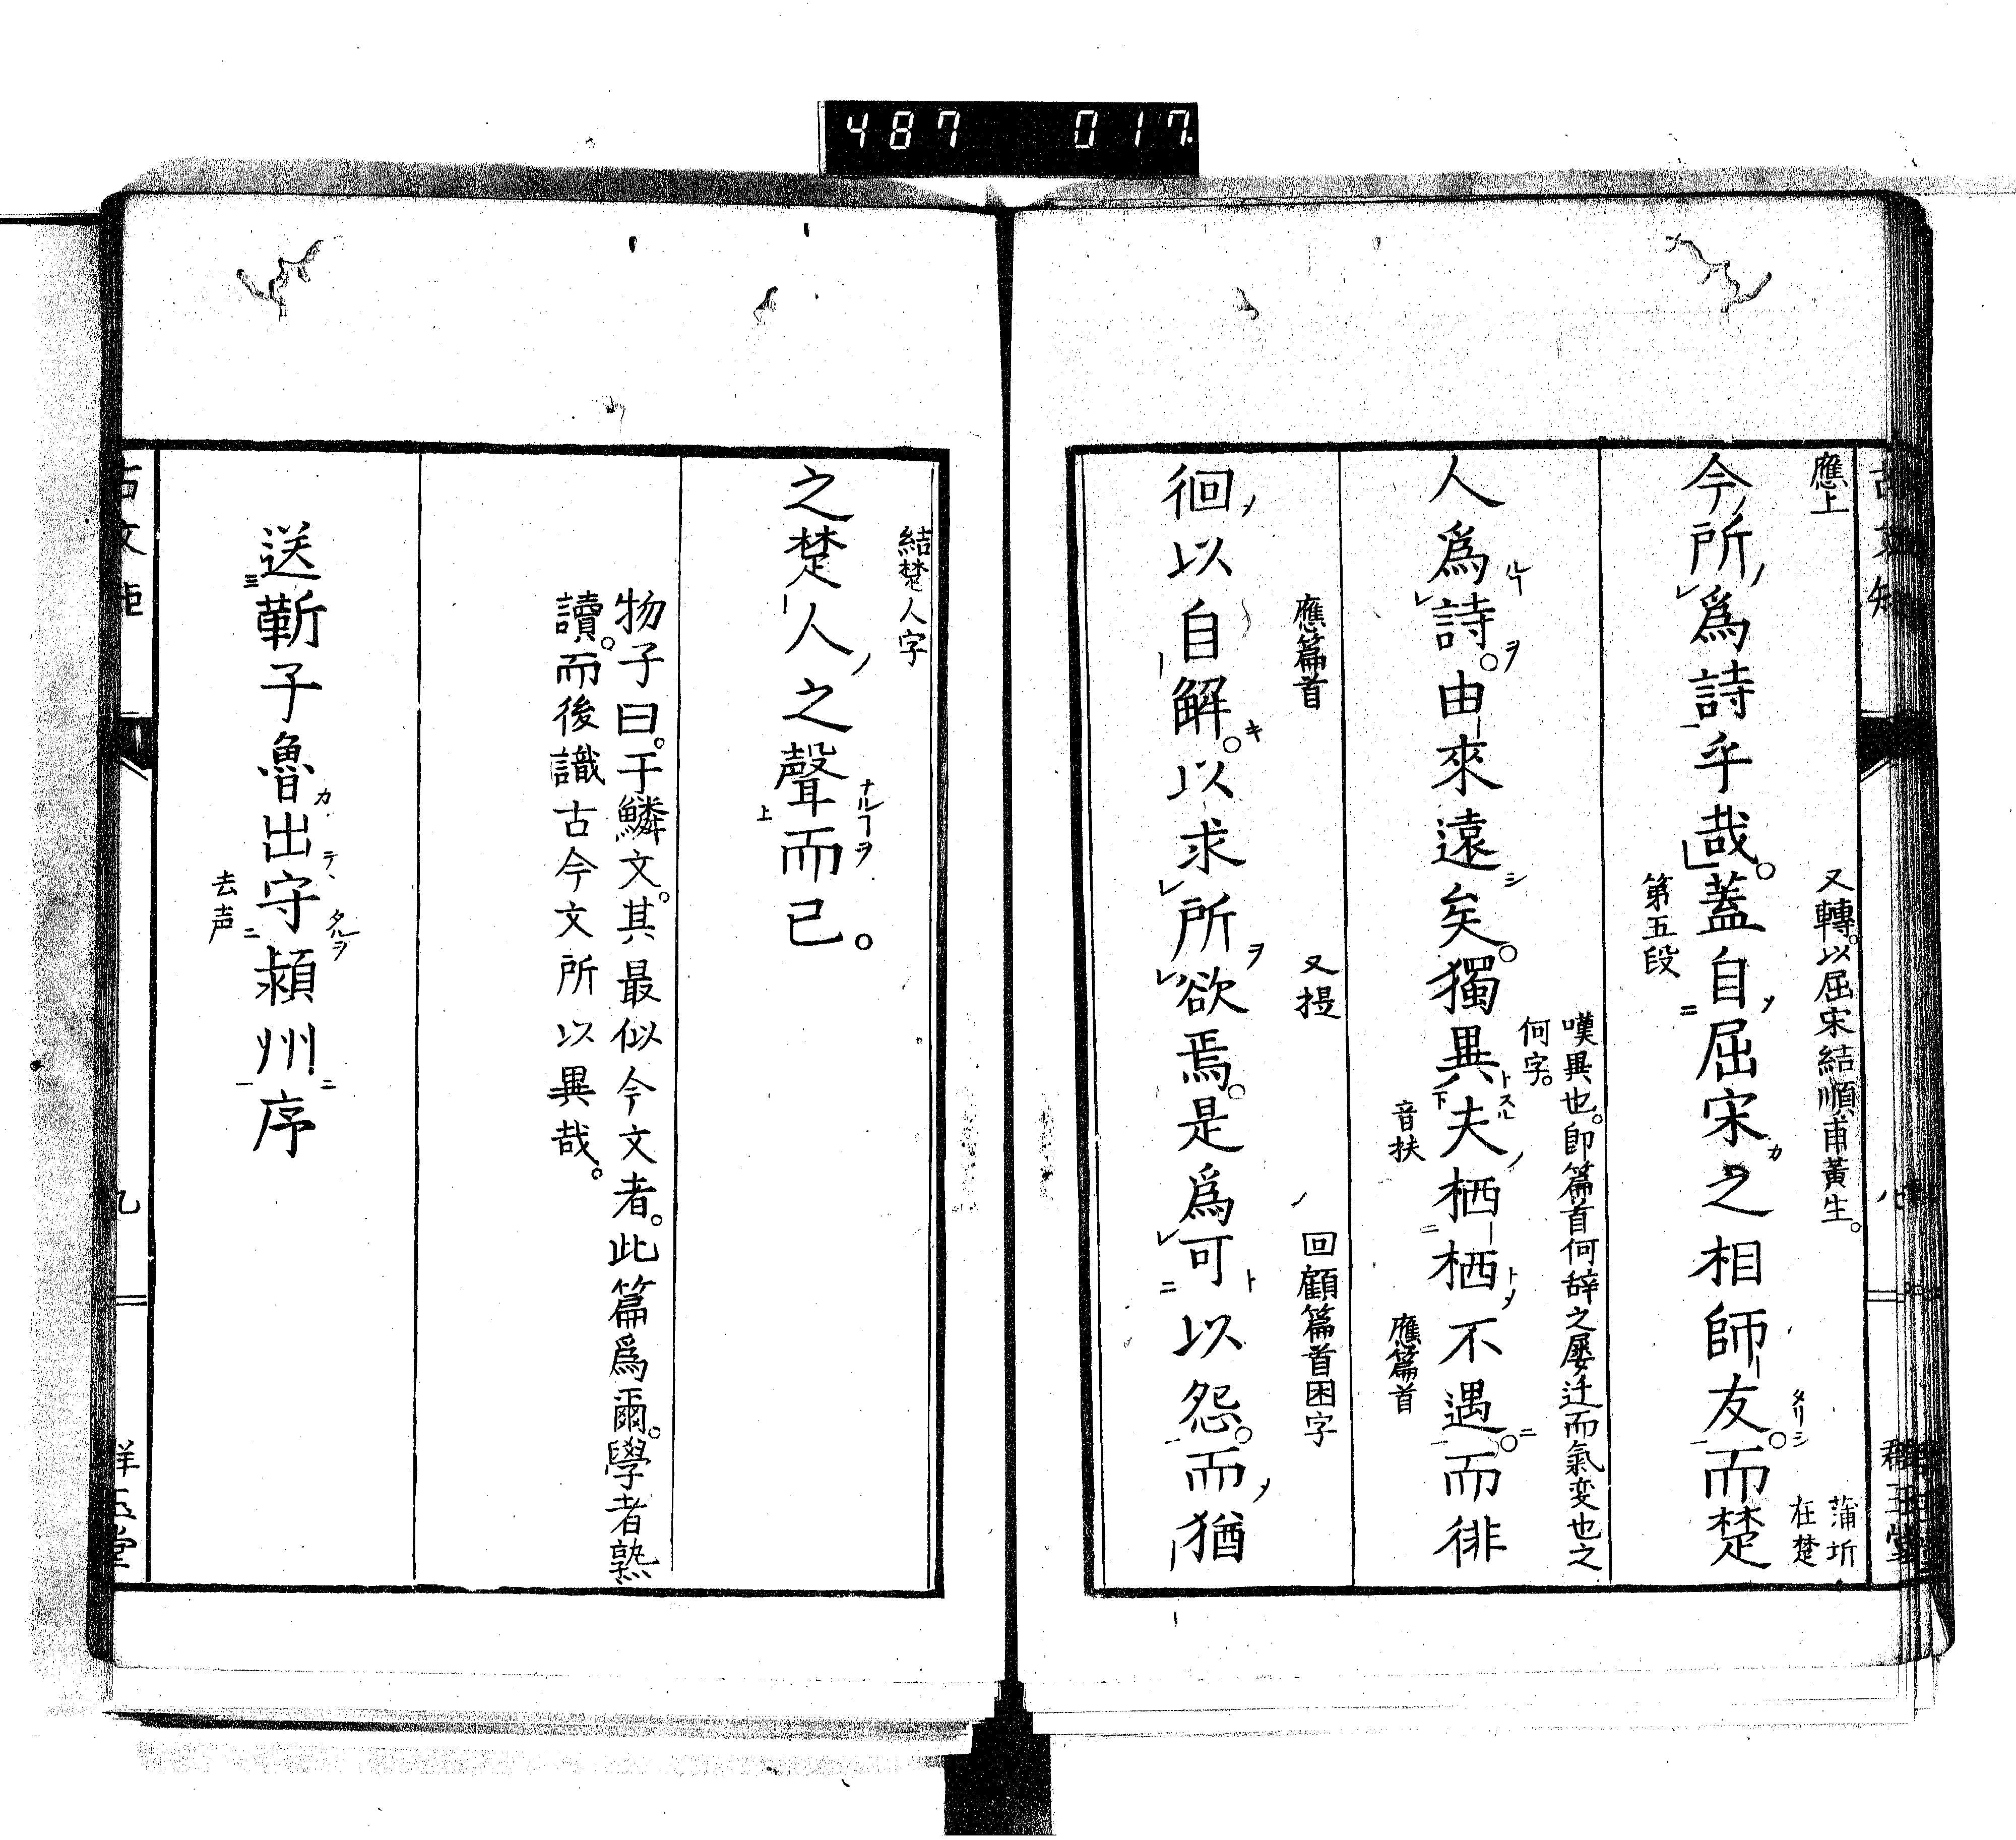 487 017
應上
又轉。以屈宋結順甫黃生。
蒲圻
在楚
今所爲詩乎哉。蓋自屈宋之相師友。而楚
第五段
嘆異也。卽篇首何辞之屡迁而氣変也之
何字。
人爲詩。由來遠矣。獨異夫栖栖不遇。而徘
音扶
應篇首
應篇首
又提
回顧篇首困字
徊以自解。以求所欲焉。是爲可以怨。而猶
結楚人字
之楚人之聲而已。
物子曰。于鱗文。其最似今文者。此篇爲爾。學者熟
讀。而後識古今文所以異哉。
送靳子魯出守潁州序
去声
九